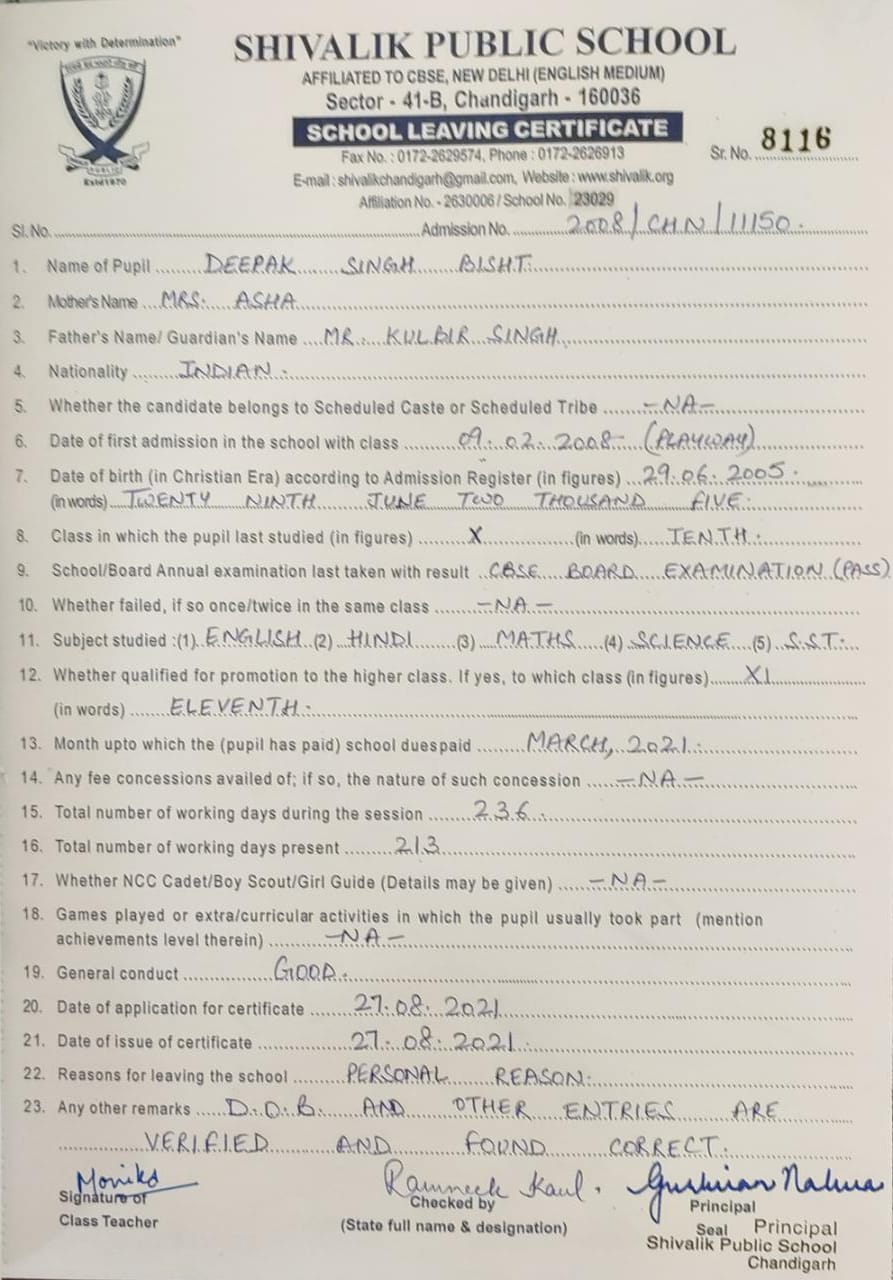 "Victory with Determination"
SHIVALIK PUBLIC SCHOOL
AFFILIATED TO CBSE, NEW DELHI (ENGLISH MEDIUM)
Sector - 41-B, Chandigarh - 160036
SCHOOL LEAVING CERTIFICATE
Fax No. : 0172-2629574, Phone : 0172-2626913
Sr. No. 8116
E-mail : shivalikchandigarh@gmail.com, Website : www.shivalik.org
Affiliation No. - 2630006 / School No. 23029
Sl. No. Admission No. 2008/CHN/11150.
1. Name of Pupil DEEPAK SINGH BISHT.
2. Mother's Name MRS. ASHA
3. Father's Name/ Guardian's Name MR. KULBIR SINGH
4. Nationality INDIAN.
5. Whether the candidate belongs to Scheduled Caste or Scheduled Tribe -NA-
6. Date of first admission in the school with class 09.02.2008 (PLAYWAY)
7. Date of birth (in Christian Era) according to Admission Register (in figures) 29.06.2005.
(in words) TWENTY NINTH JUNE TWO THOUSAND FIVE.
8. Class in which the pupil last studied (in figures) X (in words) TENTH.
9. School/Board Annual examination last taken with result CBSE BOARD EXAMINATION (PASS)
10. Whether failed, if so once/twice in the same class -NA-
11. Subject studied :(1) ENGLISH (2) HINDI (3) MATHS (4) SCIENCE (5) S.S.T.
12. Whether qualified for promotion to the higher class. If yes, to which class (in figures) XI
(in words) ELEVENTH.
13. Month upto which the (pupil has paid) school duespaid MARCH, 2021.
14. Any fee concessions availed of; if so, the nature of such concession -NA-
15. Total number of working days during the session 236.
16. Total number of working days present 213
17. Whether NCC Cadet/Boy Scout/Girl Guide (Details may be given) -NA-
18. Games played or extra/curricular activities in which the pupil usually took part (mention
achievements level therein) -NA-
19. General conduct GOOD.
20. Date of application for certificate 27.08.2021
21. Date of issue of certificate 27.08.2021.
22. Reasons for leaving the school PERSONAL REASON.
23. Any other remarks D.O.B. AND OTHER ENTRIES ARE
VERIFIED AND FOUND CORRECT.
Monika Ramneek Kaul.
Signature of Checked by Principal
Class Teacher (State full name & designation) Seal Principal
Shivalik Public School
Chandigarh